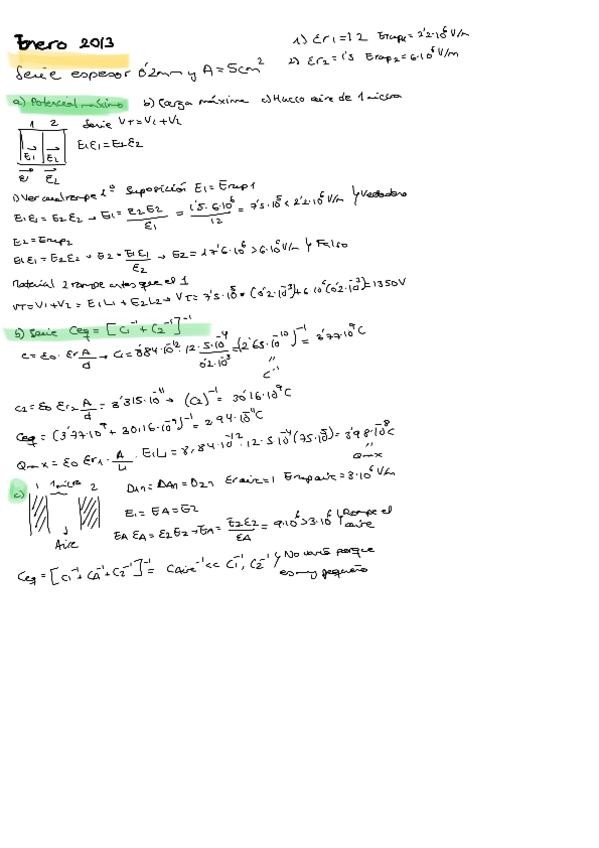 Enero 2013
1) Er1=12 Erup1=2'2·10⁶ V/m
2) Er2=1'5 Erup2=6·10⁶ V/m
Serie espesor 0'2mm y A=5cm²
a) Potencial máximo b) Carga máxima c) Hueco aire de 1 micra
1 2 Serie VT=V1+V2
E1 E2 E1ε1=E2ε2
1) Ver cual rompe 1º Suposición E1=Erup1
E1ε1=E2ε2 → E1=ε2E2/ε1 = 1'5·6·10⁶/12 = 7'5·10⁵ < 2'2·10⁶ V/m Verdadero
E2=Erup2
E1ε1=E2ε2 → E2=E1ε1/ε2 → E2=17'6·10⁶>6·10⁶ V/m Falso
Material 2 rompe antes que el 1
VT=V1+V2=E1L1+E2L2 → VT=7'5·10⁵·(0'2·10⁻³)+6·10⁶(0'2·10⁻³)=1350V
b) Serie Ceq=[C1⁻¹+C2⁻¹]⁻¹
C=ε0·Er A/d → C1=8'84·10⁻¹²·12·5·10⁻⁴/0'2·10⁻³=(2'65·10⁻¹⁰)⁻¹=3'77·10⁹C
C⁻¹
C2=ε0 Er2 A/d=3'315·10⁻¹¹ → (C2)⁻¹=30'16·10⁹C
Ceq=(3'77·10⁹+30,16·10⁹)⁻¹=2'94·10⁻¹¹C
Qmax=ε0 Er1·A/L1·E1L1=8,84·10⁻¹²·12·5·10⁻⁴(7'5·10⁵)=3'98·10⁻⁸C
Qmax
c) 1 1micra 2 D1n=DAn=D2n Er aire=1 Erup aire=3·10⁶ V/m
E1=EA=E2
EA εA=ε2E2 → EA=E2ε2/εA=9·10⁶>3·10⁶ Rompe el aire
Aire
Ceq=[C1⁻¹+CA⁻¹+C2⁻¹]⁻¹= Caire⁻¹<<C1⁻¹,C2⁻¹ No varía porque
es muy pequeño